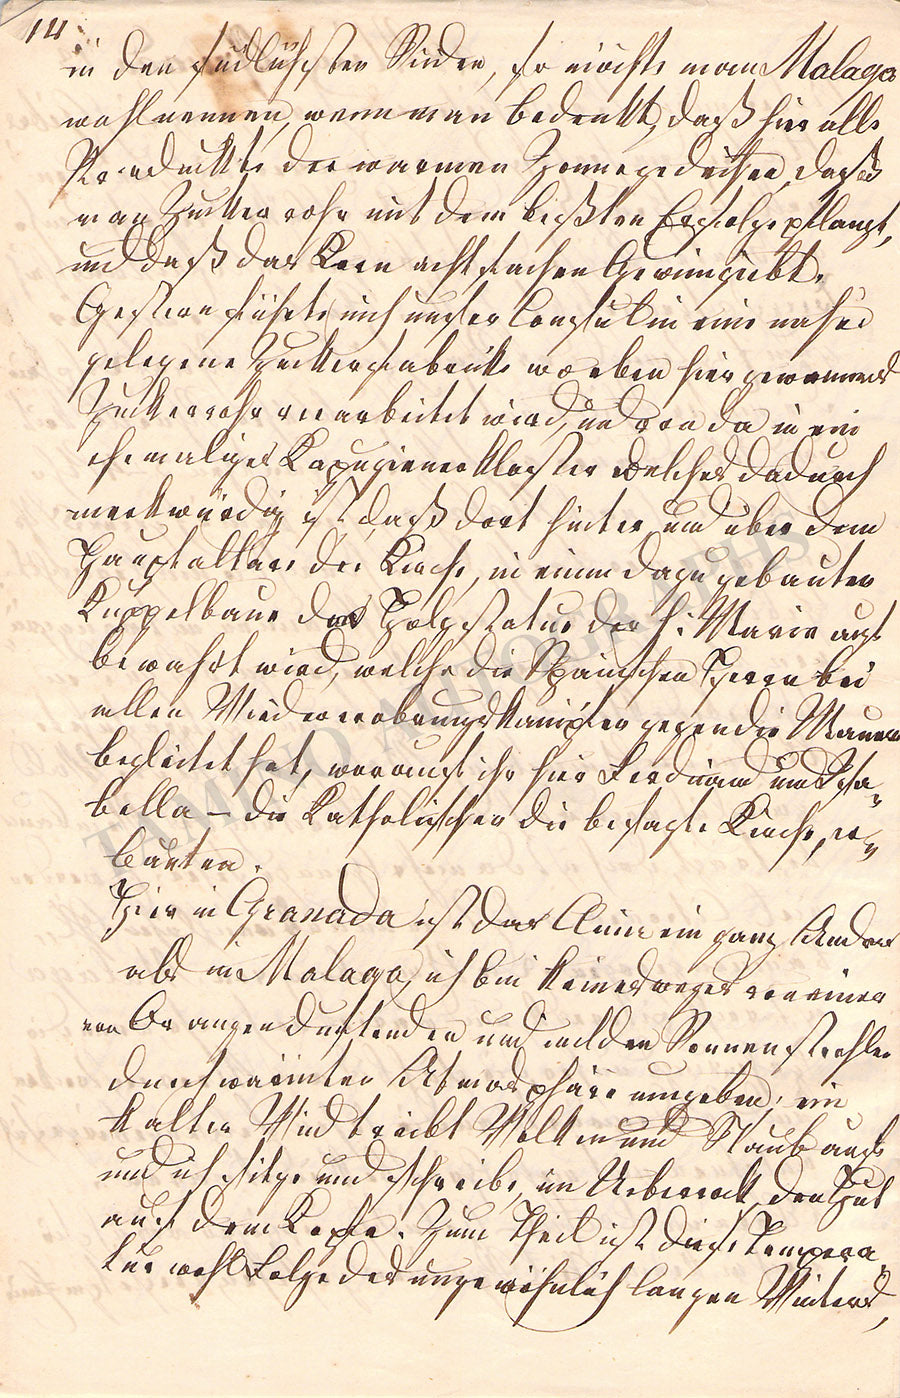 14
in den südlichsten Süden, so möchte man Malaga
wohl nennen, wenn man bedenkt, daß hier alle
Produckte der warmen Zonne gedeihen, daß
man Zuckerrohr mit dem beßten Erfolge pflanzt,
und daß das Korn achtfachen Gewinn giebt.
Gestern führte mich unser Consul in eine nahe
gelegene Zuckerfabrick wo eben hier gewonnenes
Zuckerrohr verarbeitet wird, und von da in ein
ehemaliges Kapuzienerkloster welches dadurch
merkwürdig ist, daß dort hinter und über dem
Hauptaltare der Kirche, in einem dazu gebauten
Kuppelbaue das Holzstatue der h. Marie auf
bewahrt wird, welche die Spanischen Heere bei
allen Wiedereroberungskämpfen gegen die Mauren
begleitet hat, worauf ihr hier Ferdinand und Isa=
bella – die Katholischen die besagte Kirche, er=
bauten.
Hier in Granada ist das Clima ein ganz Andres
als in Malaga, ich bin keineswegs von einer
von Orangen duftenden und milden Sonnenstrahlen
durchwärmten Atmosphäre umgeben; ein
kalter Wind treibt Wolken und Staub auf
und ich sitze und schreibe, im Ueberrock, den Hut
auf dem Kopfe. Zum Theil ist diese Tempera
tur wohl Folge des ungewöhnlich langen Winters,
TAMINO AUTOGRAPHS